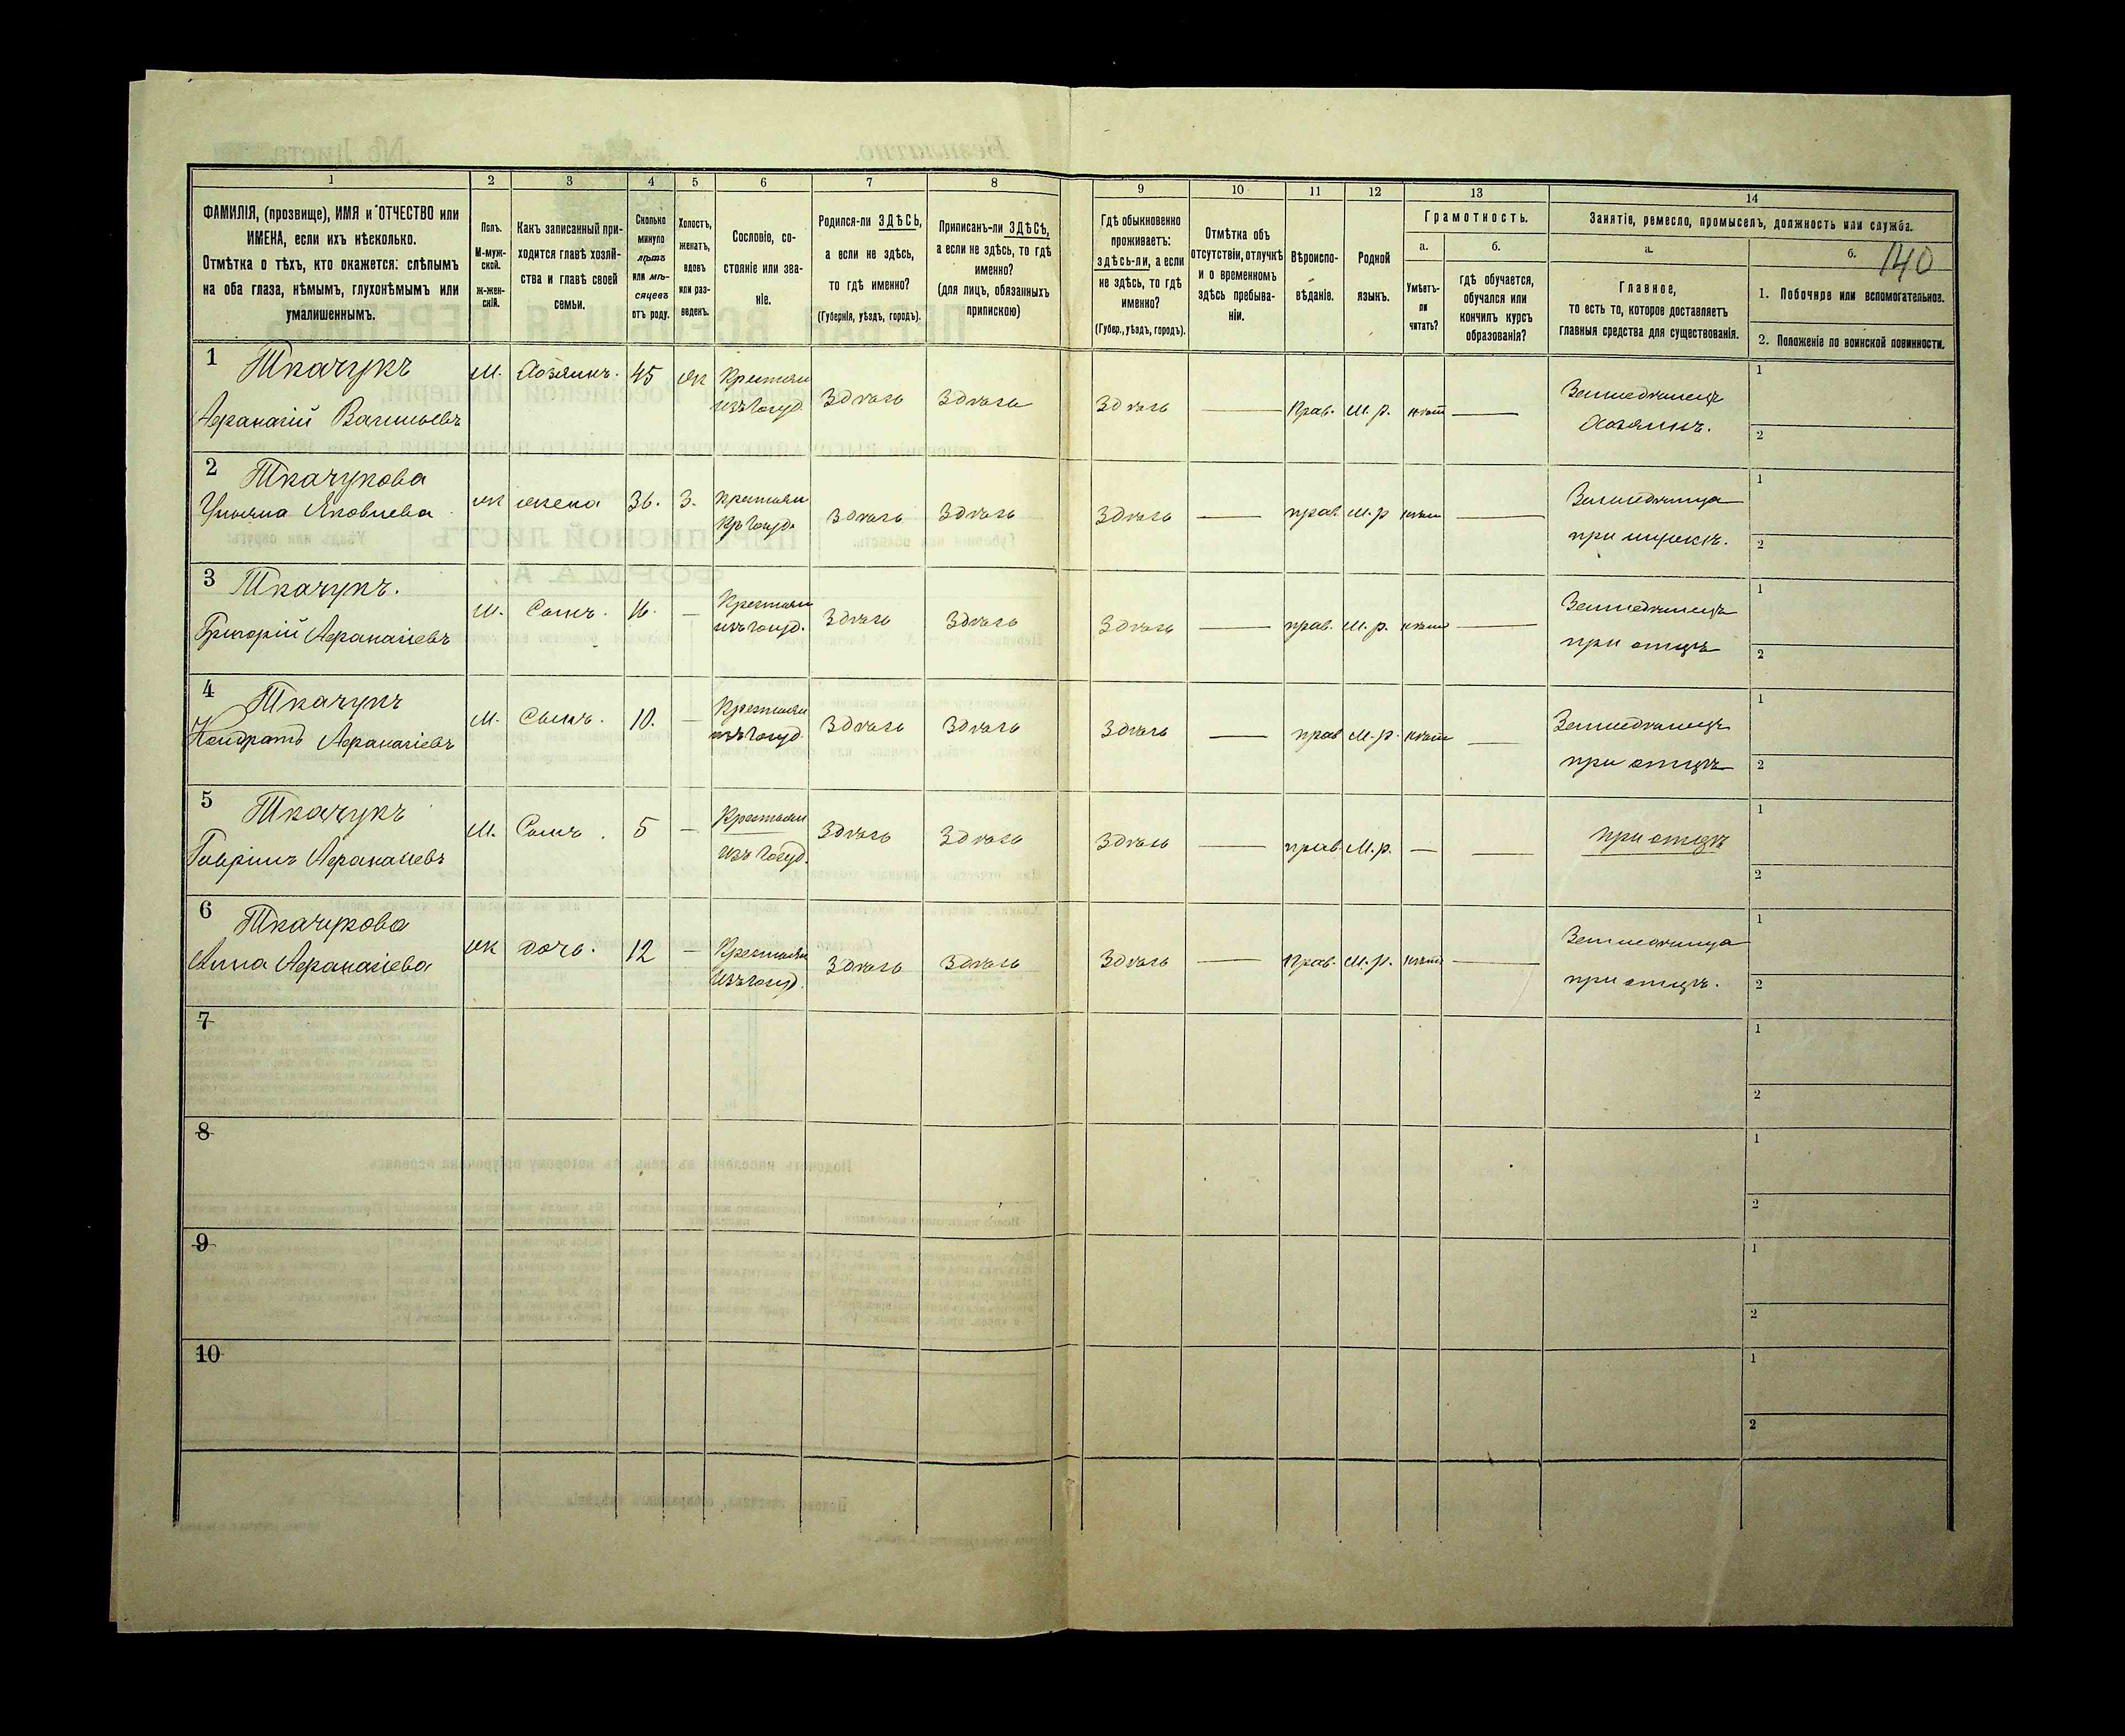 1 2 3 4 5 6 7 8 9 10 11 12 13 14
ФАМИЛІЯ, (прозвище), ИМЯ и ОТЧЕСТВО или
ИМЕНА, если ихъ нѣсколько.
Отмѣтка о тѣхъ, кто окажется: слѣпымъ
на оба глаза, нѣмымъ, глухонѣмымъ или
умалишеннымъ.
Полъ.
М-муж-
ской.
ж-жен-
скій.
Какъ записанный при-
ходится главѣ хозяй-
ства и главѣ своей
семьи.
Сколько
минуло
лѣтъ
или мѣ-
сяцевъ
отъ роду.
Холостъ,
женатъ,
вдовъ
или раз-
веденъ.
Сословіе, со-
стояніе или зва-
ніе.
Родился-ли ЗДѢСЬ,
а если не здѣсь,
то гдѣ именно?
(Губернія, уѣздъ, городъ).
Приписанъ-ли ЗДѢСЬ,
а если не здѣсь, то гдѣ
именно?
(для лицъ, обязанныхъ
припискою)
Гдѣ обыкновенно
проживаетъ:
здѣсь-ли, а если
не здѣсь, то гдѣ
именно?
(Губер., уѣздъ, городъ).
Отмѣтка объ
отсутствіи, отлучкѣ
и о временномъ
здѣсь пребыва-
ніи.
Вѣроиспо-
вѣданіе.
Родной
языкъ.
Грамотность.
а.
Умѣетъ-
ли
читать?
б.
гдѣ обучается,
обучался или
кончилъ курсъ
образованія?
Занятіе, ремесло, промыселъ, должность или служба.
а.
Главное,
то есть то, которое доставляетъ
главныя средства для существованія.
б.
140
1. Побочное или вспомогательное.
2. Положеніе по воинской повинности.
1 Ткачукъ
Афанасій Васильевъ
М. Хозяинъ. 45 ж Крестьян
изъ госуд. Здѣсь Здѣсь Здѣсь — Прав. М. р. нѣт — Земледѣлецъ
Хозяинъ.
1
2
2 Ткачукова
Ульяна Яковлева
ж жена 36. З. Крестьян
Здѣсь Здѣсь Здѣсь — прав. М. р нѣт — Земледѣлица
при мужѣ.
1
2
3 Ткачукъ.
Григорій Афанасіевъ
М. Сынъ. 16. — Крестьян
изъ госуд. Здѣсь Здѣсь Здѣсь — прав. М. р. нѣт — Земледѣлецъ
при отцѣ
1
2
4 Ткачукъ
Кондратъ Афанасіевъ
М. Сынъ. 10. — Крестьян
изъ госуд. Здѣсь Здѣсь Здѣсь — прав М. р. нѣт — Земледѣлецъ
при отцѣ
1
2
5 Ткачукъ
Гавріилъ Афанасіевъ
М. Сынъ. 5 — Крестьян
изъ госуд. Здѣсь Здѣсь Здѣсь — прав. М. р. — — при отцѣ
1
2
6 Ткачукова
Анна Афанасіева
ж дочь. 12 — Крестьян
изъ госуд. Здѣсь Здѣсь Здѣсь — Прав. М. р. нѣт — Земледѣлица
при отцѣ.
1
2
7
1
2
8
1
2
9
1
2
10
1
2